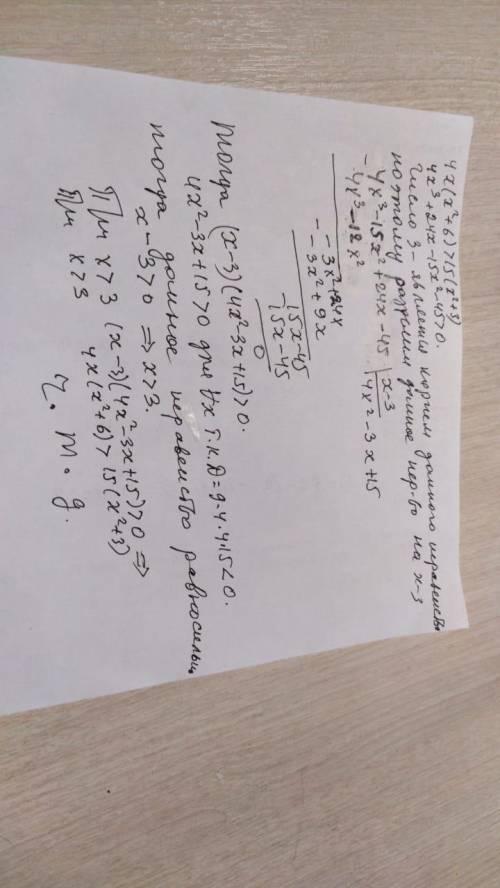 4x(x²+6)>15(x²+3)
4x³+24x-15x²-45>0.
Число 3 - является корнем данного неравенства
поэтому разделим данное нер-во на x-3
- 4x³-15x²+24x-45 | x-3
4x³-12x² | 4x²-3x+15
- -3x²+24x
-3x²+9x
- 15x-45
15x-45
0
Тогда (x-3)(4x²-3x+15)>0.
4x²-3x+15>0 для ∀x т.к. D=9-4·4·15<0.
тогда данное неравенство равносильно
x-3>0 ⇒ x>3.
При x>3 (x-3)(4x²-3x+15)>0 ⇒
При x>3 4x(x²+6)>15(x²+3)
ч. т. д.